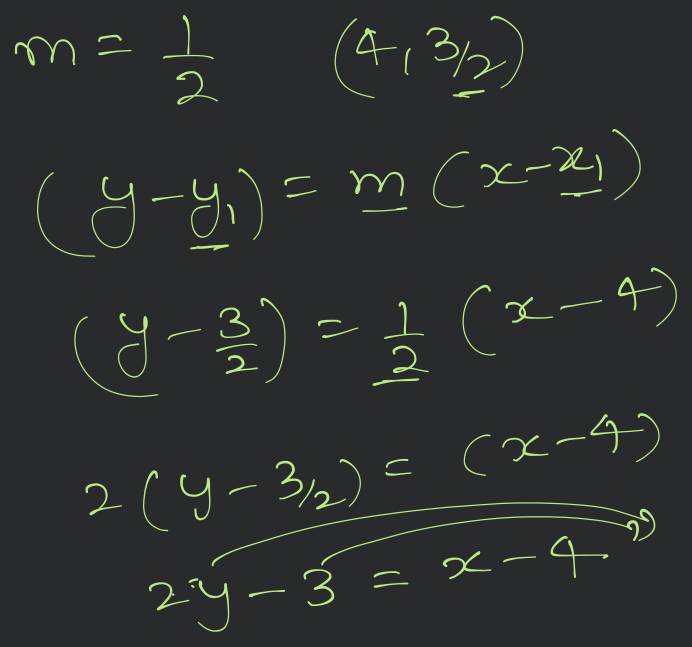 m = 1/2 (4, 3/2)
(y - y₁) = m (x - x₁)
(y - 3/2) = 1/2 (x - 4)
2 (y - 3/2) = (x - 4)
2y - 3 = x - 4